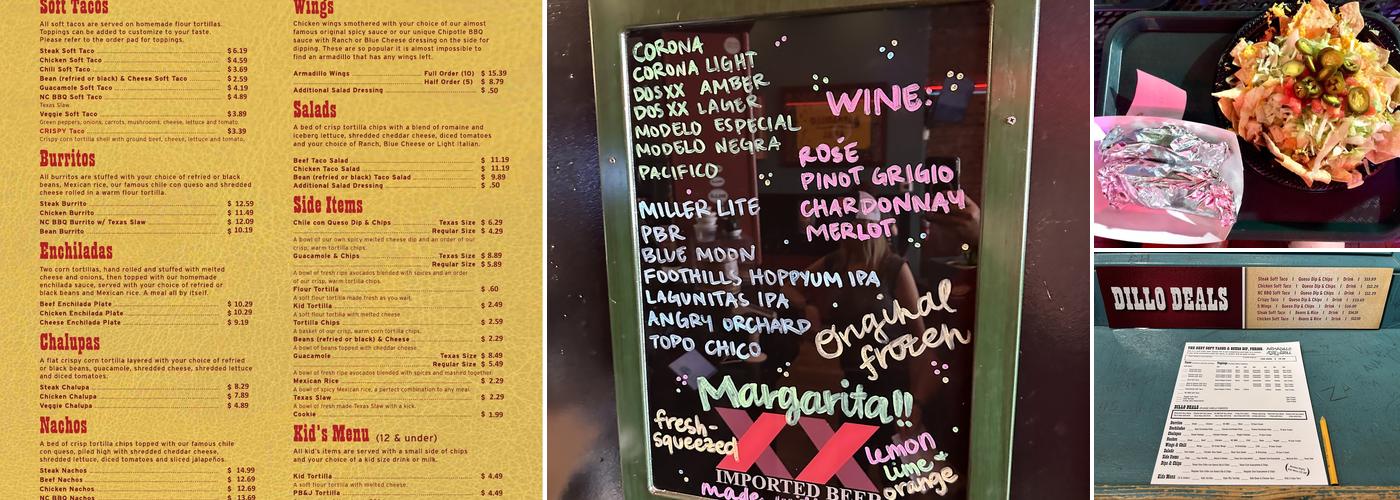 Soft Tacos
All soft tacos are served on homemade flour tortillas.
Toppings can be added to customize to your taste.
Please refer to the order pad for toppings.
Steak Soft Taco $6.19
Chicken Soft Taco $4.59
Chili Soft Taco $3.69
Bean (refried or black) & Cheese Soft Taco $2.59
Guacamole Soft Taco $4.19
NC BBQ Soft Taco $4.89
Texas Slaw
Veggie Soft Taco $3.89
Green peppers, onions, carrots, mushrooms, cheese, lettuce and tomato.
CRISPY Taco $3.39
Crispy corn tortilla shell with ground beef, cheese, lettuce and tomato.
Burritos
All burritos are stuffed with your choice of refried or black
beans, Mexican rice, our famous chile con queso and shredded
cheese rolled in a warm flour tortilla.
Steak Burrito $12.59
Chicken Burrito $11.49
NC BBQ Burrito w/ Texas Slaw $12.09
Bean Burrito $10.19
Enchiladas
Two corn tortillas, hand rolled and stuffed with melted
cheese and onions, then topped with our homemade
enchilada sauce, served with your choice of refried or
black beans and Mexican rice. A meal all by itself.
Beef Enchilada Plate $10.29
Chicken Enchilada Plate $10.29
Cheese Enchilada Plate $9.19
Chalupas
A flat crispy corn tortilla layered with your choice of refried
or black beans, guacamole, shredded cheese, shredded lettuce
and diced tomatoes.
Steak Chalupa $8.29
Chicken Chalupa $7.89
Veggie Chalupa $4.89
Nachos
A bed of crisp tortilla chips topped with our famous chile
con queso, piled high with shredded cheddar cheese,
shredded lettuce, diced tomatoes and sliced jalapeños.
Steak Nachos $14.99
Beef Nachos $12.69
Chicken Nachos $12.69
NC BBQ Nachos $13.69
Wings
Chicken wings smothered with your choice of our almost
famous original spicy sauce or our unique Chipotle BBQ
sauce with Ranch or Blue Cheese dressing on the side for
dipping. These are so popular it is almost impossible to
find an armadillo that has any wings left.
Armadillo Wings Full Order (10) $15.39
Half Order (5) $8.79
Additional Salad Dressing $.50
Salads
A bed of crisp tortilla chips with a blend of romaine and
iceberg lettuce, shredded cheddar cheese, diced tomatoes
and your choice of Ranch, Blue Cheese or Light Italian.
Beef Taco Salad $11.19
Chicken Taco Salad $11.19
Bean (refried or black) Taco Salad $9.89
Additional Salad Dressing $.50
Side Items
Chile con Queso Dip & Chips Texas Size $6.29
Regular Size $4.29
A bowl of our own spicy melted cheese dip and an order of our
crisp, warm tortilla chips.
Guacamole & Chips Texas Size $8.89
Regular Size $5.89
A bowl of fresh ripe avocados blended with spices and an order
of our crisp, warm tortilla chips.
Flour Tortilla $.60
A soft flour tortilla made fresh as you wait.
Kid Tortilla $2.49
A soft flour tortilla with melted cheese
Tortilla Chips $2.59
A basket of our crisp, warm corn tortilla chips.
Beans (refried or black) & Cheese $2.29
A bowl of beans topped with cheddar cheese.
Guacamole Texas Size $8.49
Regular Size $5.49
A bowl of fresh ripe avocados blended with spices and mashed together
Mexican Rice $2.29
A bowl of spicy Mexican rice, a perfect combination to any meal.
Texas Slaw $2.29
A bowl of fresh made Texas Slaw with a kick.
Cookie $1.99
Kid's Menu (12 & under)
All kid's items are served with a small side of chips
and your choice of a kid size drink or milk.
Kid Tortilla $4.49
A soft flour tortilla with melted cheese.
PB&J Tortilla $4.49
CORONA
CORONA LIGHT
DOS XX AMBER
DOS XX LAGER
MODELO ESPECIAL
MODELO NEGRA
PACIFICO
MILLER LITE
PBR
BLUE MOON
FOOTHILLS HOPPYUM IPA
LAGUNITAS IPA
ANGRY ORCHARD
TOPO CHICO
WINE:
ROSE
PINOT GRIGIO
CHARDONNAY
MERLOT
Original
frozen
Margarita!!
fresh-
squeezed
lemon
lime &
orange
XX
IMPORTED BEER
made
DILLO DEALS
Steak Soft Taco | Queso Dip & Chips | Drink
Chicken Soft Taco | Queso Dip & Chips | Drink
NC BBQ Soft Taco | Queso Dip & Chips | Drink
Crispy Taco | Queso Dip & Chips | Drink
Steak Soft Taco | Beans & Rice | Drink
Chicken Soft Taco | Beans & Rice | Drink
THE BEST SOFT TACOS & QUESO DIP, PERIOD.
DILLO DEALS
Burritos
Enchiladas
Chalupas
Nachos
Wings & Chili
Salads
Side Items
Dips & Chips
Kids Menu